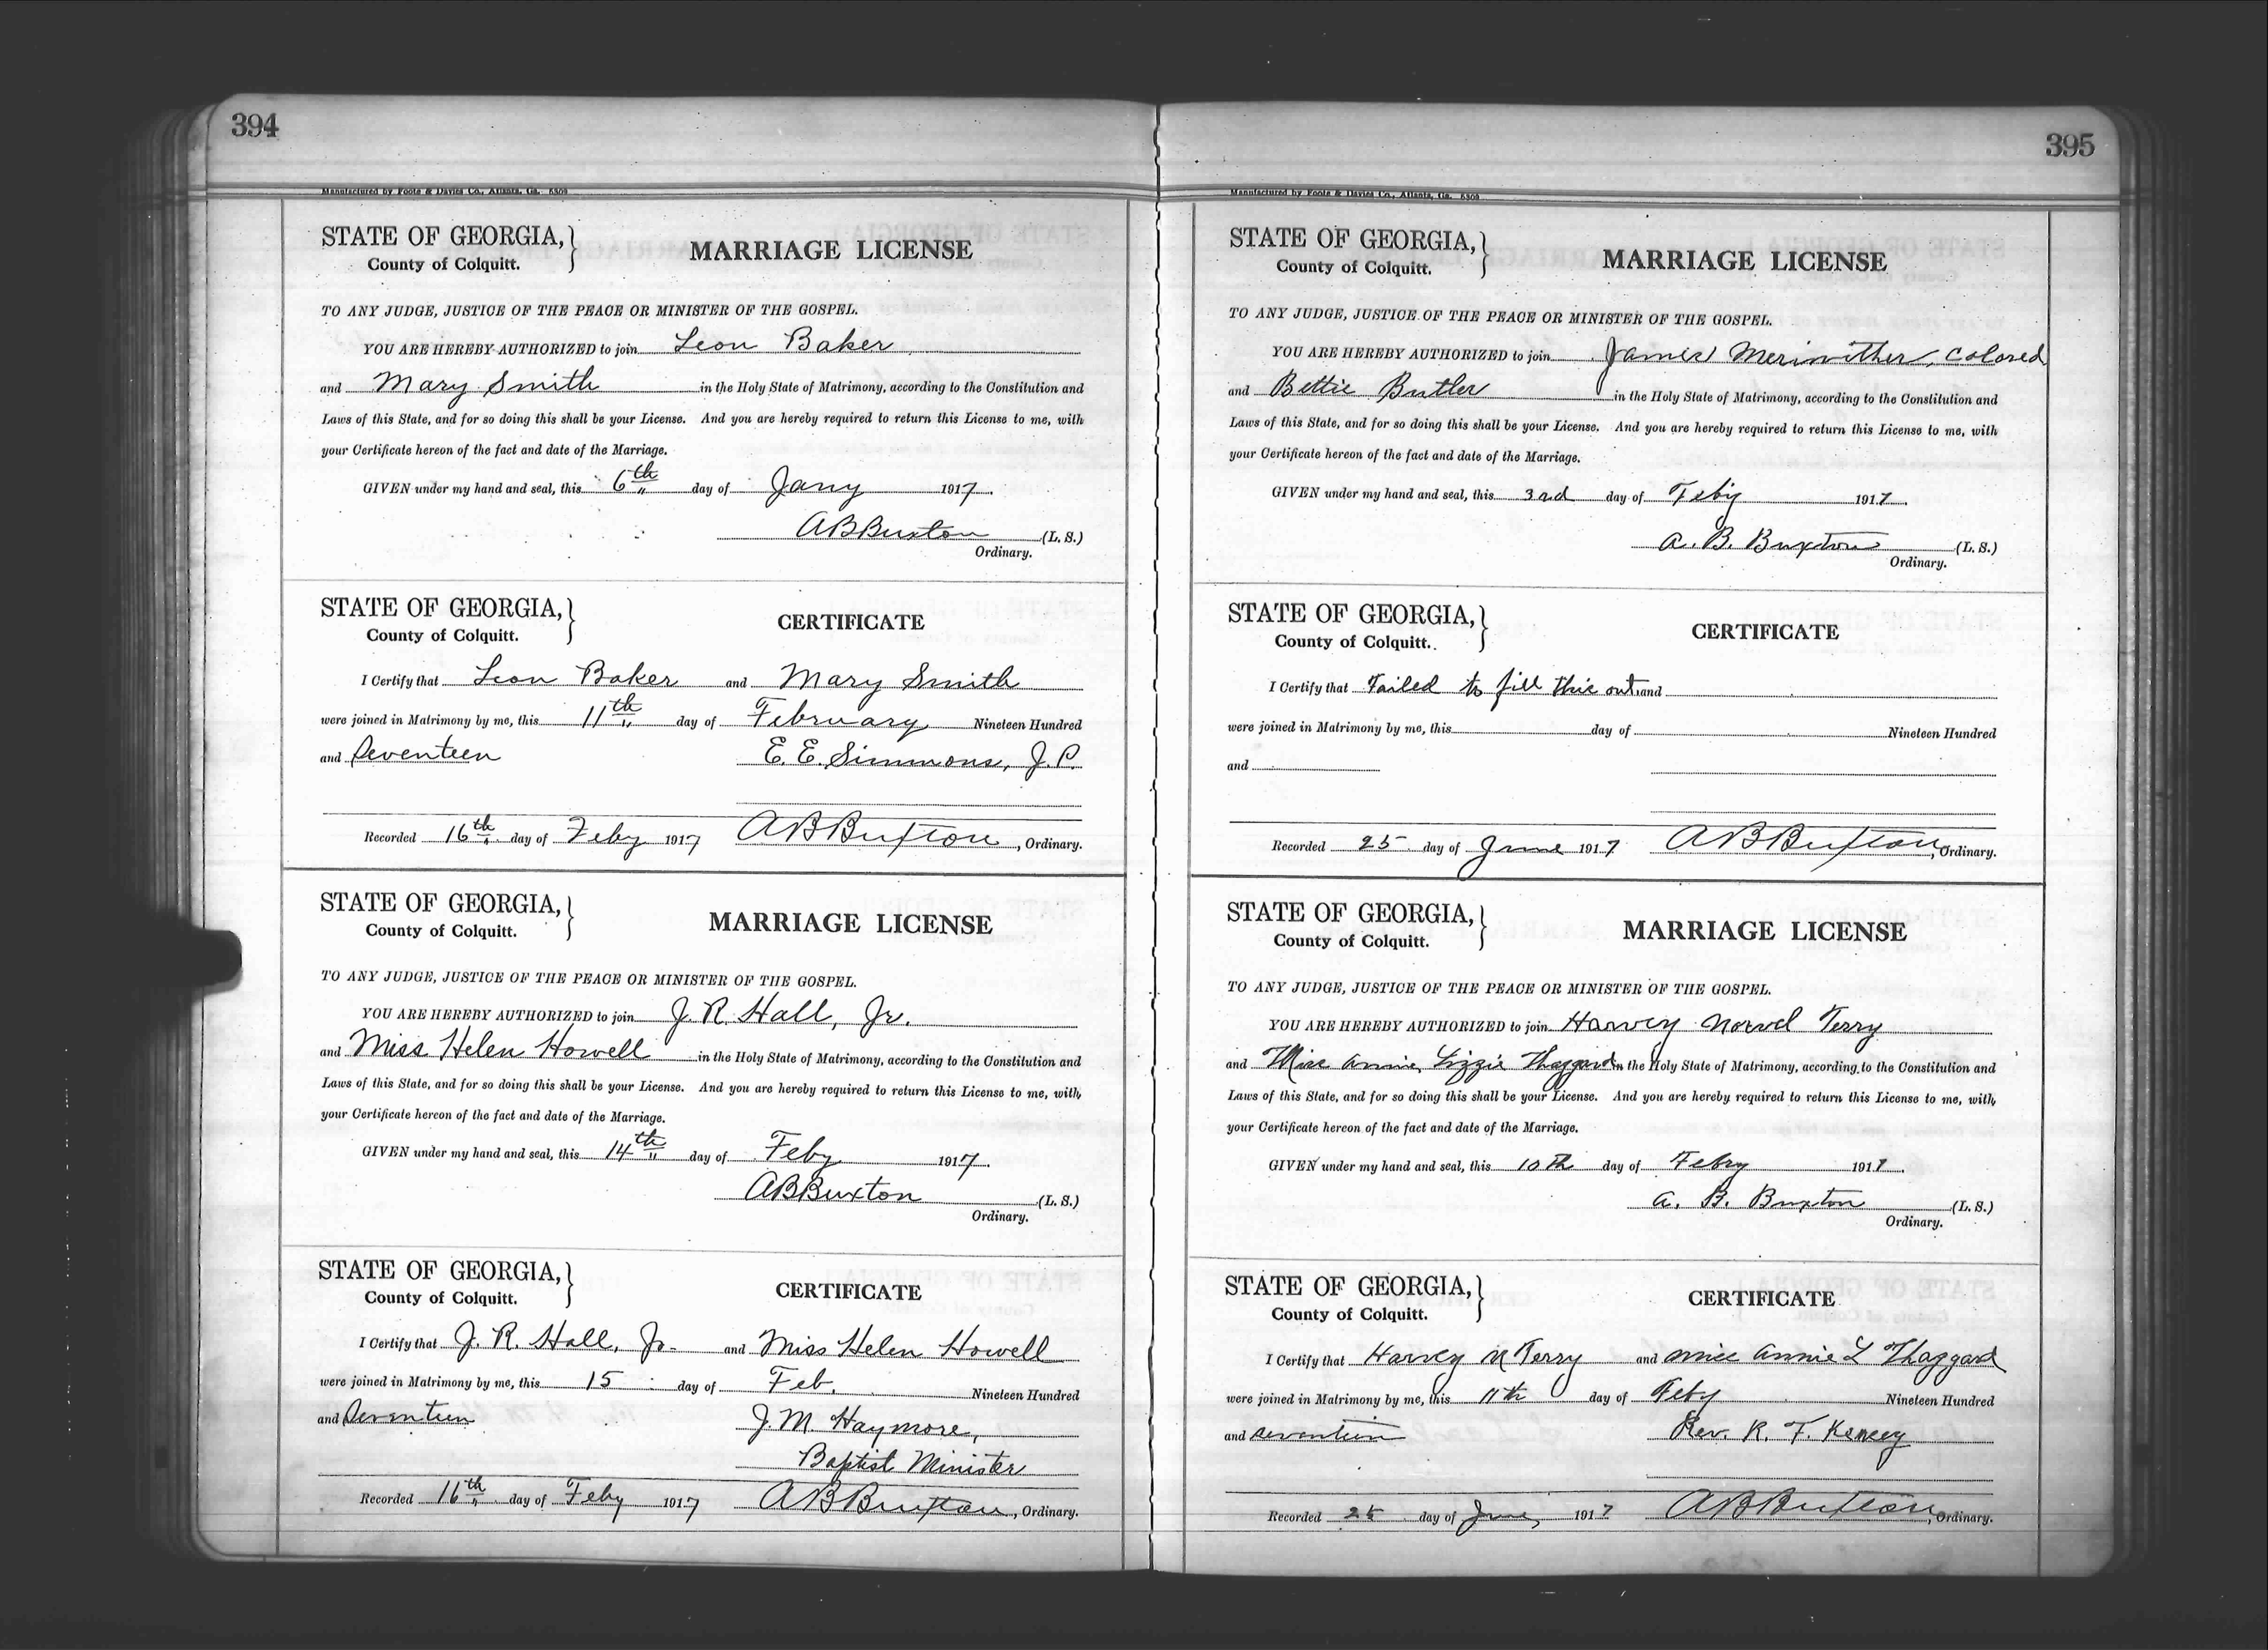 394
Manufactured by Foote & Davies Co., Atlanta, Ga. 5309
STATE OF GEORGIA,
County of Colquitt.
MARRIAGE LICENSE
TO ANY JUDGE, JUSTICE OF THE PEACE OR MINISTER OF THE GOSPEL.
YOU ARE HEREBY AUTHORIZED to join Leon Baker
and Mary Smith in the Holy State of Matrimony, according to the Constitution and
Laws of this State, and for so doing this shall be your License. And you are hereby required to return this License to me, with
your Certificate hereon of the fact and date of the Marriage.
GIVEN under my hand and seal, this 6th day of Jany 1917.
A B Buxton (L. S.)
Ordinary.
STATE OF GEORGIA,
County of Colquitt.
CERTIFICATE
I Certify that Leon Baker and Mary Smith
were joined in Matrimony by me, this 11th day of February Nineteen Hundred
and Seventeen E. E. Simmons, J. P.
Recorded 16th day of Feby 1917 A B Buxton, Ordinary.
STATE OF GEORGIA,
County of Colquitt.
MARRIAGE LICENSE
TO ANY JUDGE, JUSTICE OF THE PEACE OR MINISTER OF THE GOSPEL.
YOU ARE HEREBY AUTHORIZED to join J. R. Hall, Jr.
and Miss Helen Howell in the Holy State of Matrimony, according to the Constitution and
Laws of this State, and for so doing this shall be your License. And you are hereby required to return this License to me, with
your Certificate hereon of the fact and date of the Marriage.
GIVEN under my hand and seal, this 14th day of Feby 1917.
A B Buxton (L. S.)
Ordinary.
STATE OF GEORGIA,
County of Colquitt.
CERTIFICATE
I Certify that J. R. Hall, Jr. and Miss Helen Howell
were joined in Matrimony by me, this 15 day of Feb. Nineteen Hundred
and Seventeen J. M. Haymore,
Baptist Minister
Recorded 16th day of Feby 1917 A B Buxton, Ordinary.
395
Manufactured by Foote & Davies Co., Atlanta, Ga. 5309
STATE OF GEORGIA,
County of Colquitt.
MARRIAGE LICENSE
TO ANY JUDGE, JUSTICE OF THE PEACE OR MINISTER OF THE GOSPEL.
YOU ARE HEREBY AUTHORIZED to join James Meriwither, colored
and Bettie Butler in the Holy State of Matrimony, according to the Constitution and
Laws of this State, and for so doing this shall be your License. And you are hereby required to return this License to me, with
your Certificate hereon of the fact and date of the Marriage.
GIVEN under my hand and seal, this 3rd day of Feby 1917.
A. B. Buxton (L. S.)
Ordinary.
STATE OF GEORGIA,
County of Colquitt.
CERTIFICATE
I Certify that Failed to fill this out and
were joined in Matrimony by me, this day of Nineteen Hundred
and
Recorded 25 day of June 1917 A B Buxton, Ordinary.
STATE OF GEORGIA,
County of Colquitt.
MARRIAGE LICENSE
TO ANY JUDGE, JUSTICE OF THE PEACE OR MINISTER OF THE GOSPEL.
YOU ARE HEREBY AUTHORIZED to join Harvey Norvel Terry
and Miss Annie Lizzie Thaggard in the Holy State of Matrimony, according to the Constitution and
Laws of this State, and for so doing this shall be your License. And you are hereby required to return this License to me, with
your Certificate hereon of the fact and date of the Marriage.
GIVEN under my hand and seal, this 10th day of Febry 1917.
A. B. Buxton (L. S.)
Ordinary.
STATE OF GEORGIA,
County of Colquitt.
CERTIFICATE
I Certify that Harvey N Terry and Miss Annie L Thaggard
were joined in Matrimony by me, this 11th day of Feby Nineteen Hundred
and seventeen Rev. R. F.
Recorded 25 day of June 1917 A B Buxton, Ordinary.